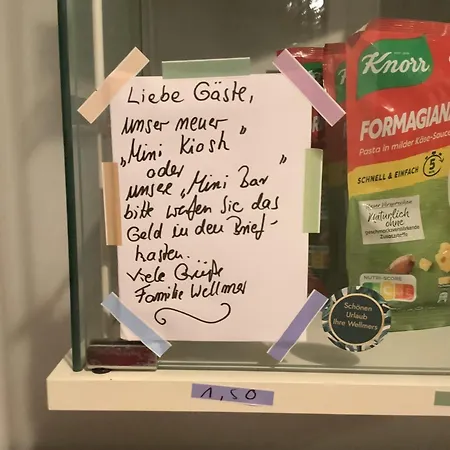 Liebe Gäste,
unser neuer
„Mini Kiosk"
oder
unsere „Mini Bar"
bitte werfen Sie das
Geld in den Brief-
kasten...
Viele Grüße
Familie Wellmer
Knorr
FORMAGIANA
Pasta in milder Käse-Sauce
SCHNELL & EINFACH
5
Natürlich
ohne
NUTRI-SCORE
Schönen
Urlaub
Ihre Wellmers
1,50